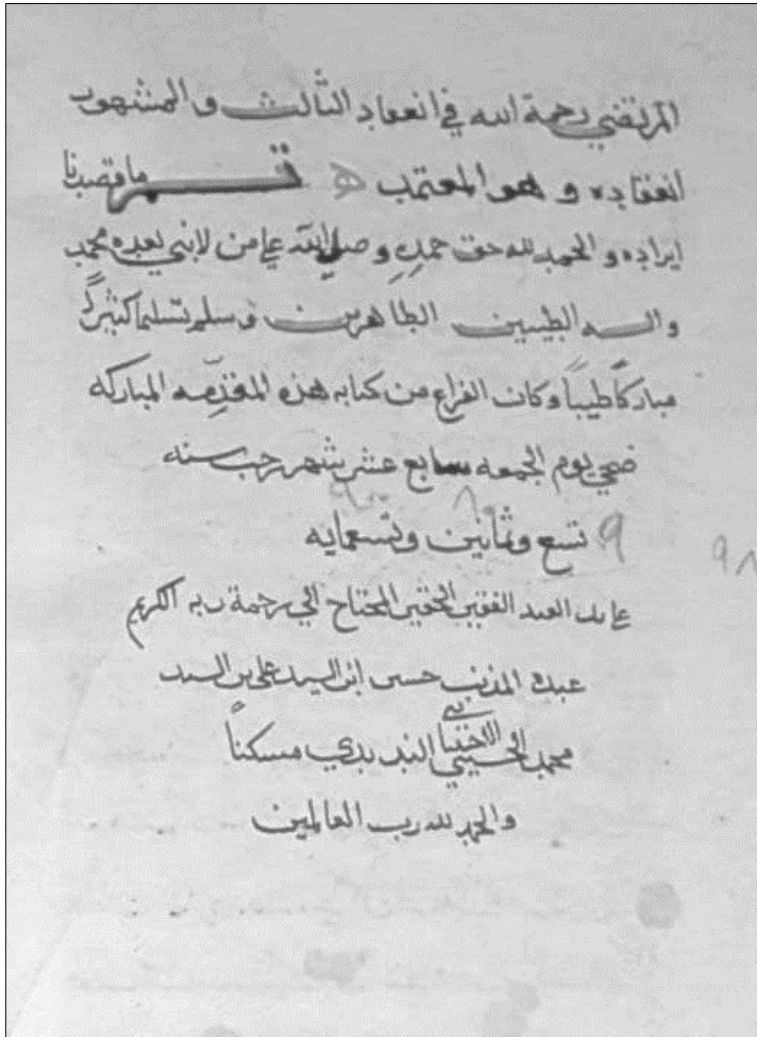 المرتضي رحمة الله في انعقاد الثالث والمشهور
انعقاده و هو المعتمد ه تم ما قصدنا
ايراده و الحمد لله حق حمده وصلي الله علي من لا نبي بعده محمد
واله الطيبين الطاهرين وسلم تسليما كثيراً
مباركاً طيباً وكان الفراغ من كتابه هذه المقدّمه المباركه
ضحي يوم الجمعه سابع عشر شهر رجب سنه
٩٠٠ ٨٠
٩ تسع وثمانين وتسعمايه
٩٨
علي يد العبد الفقير الحقير المحتاج الي رحمة ربه الكريم
عبده المذنب حسين ابن السيد علي بن السيد
محمد الحسيني مسكناً
والحمد لله رب العالمين